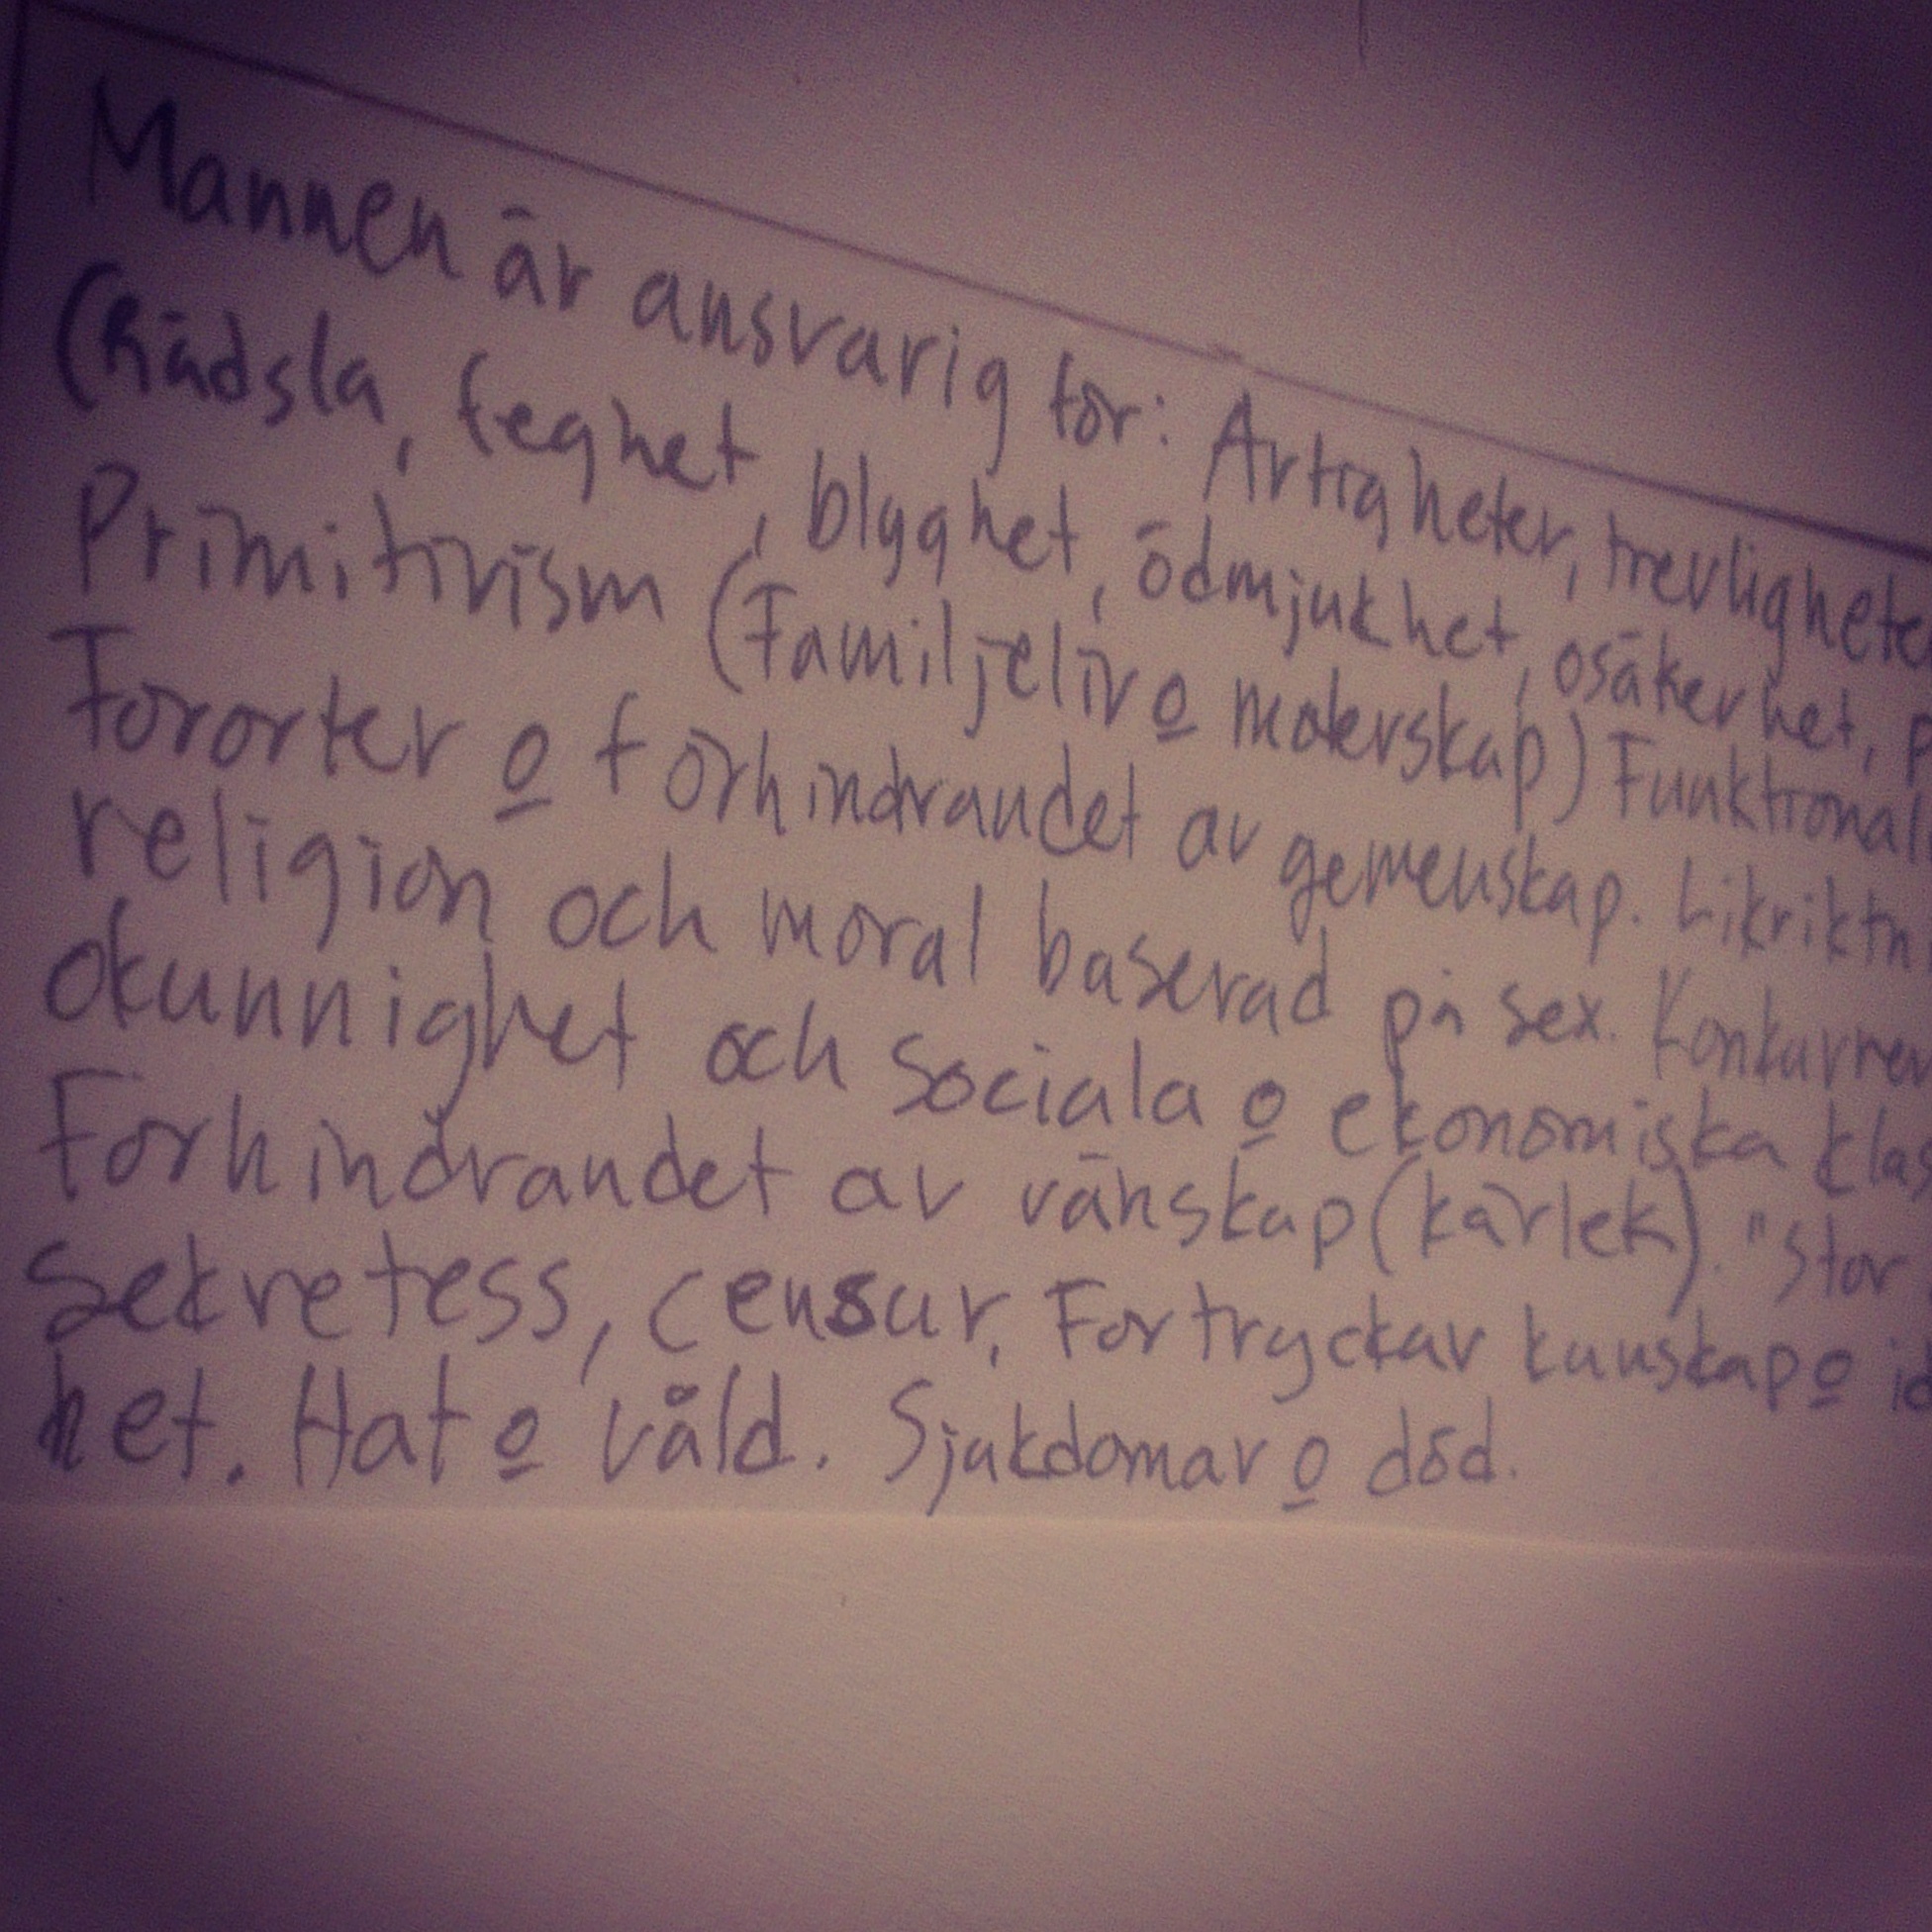 Mannen är ansvarig för: Artigheter, trevlighete
(Rädsla, feghet, blyghet, ödmjukhet, osäkerhet, p
Primitivism (Familjeliv o moderskap) Funktional
Förorter o förhindrandet av gemenskap. Likriktn
religion och moral baserad på sex. Konkurren
okunnighet och sociala o ekonomiska klas
Förhindrandet av vänskap (kärlek). "Stor
Sekretess, censur, Förtryckar kunskap o id
het. Hat o våld. Sjukdomar o död.